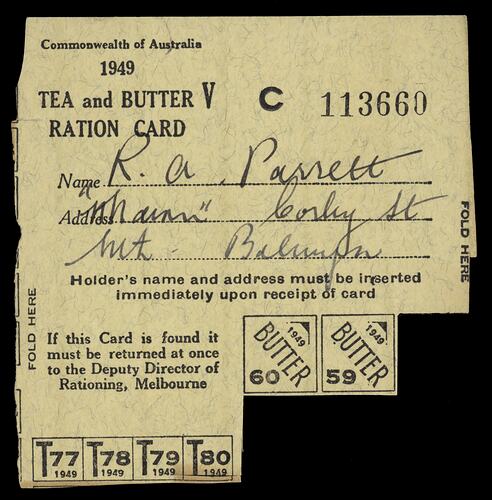 Commonwealth of Australia
1949
TEA and BUTTER V
RATION CARD
C 113660
Name R. A. Parrett
Address St
Mt.
Holder's name and address must be inserted
immediately upon receipt of card
FOLD HERE
FOLD HERE
If this Card is found it
must be returned at once
to the Deputy Director of
Rationing, Melbourne
1949
BUTTER
60
1949
BUTTER
59
T77
1949
T78
1949
T79
1949
T80
1949